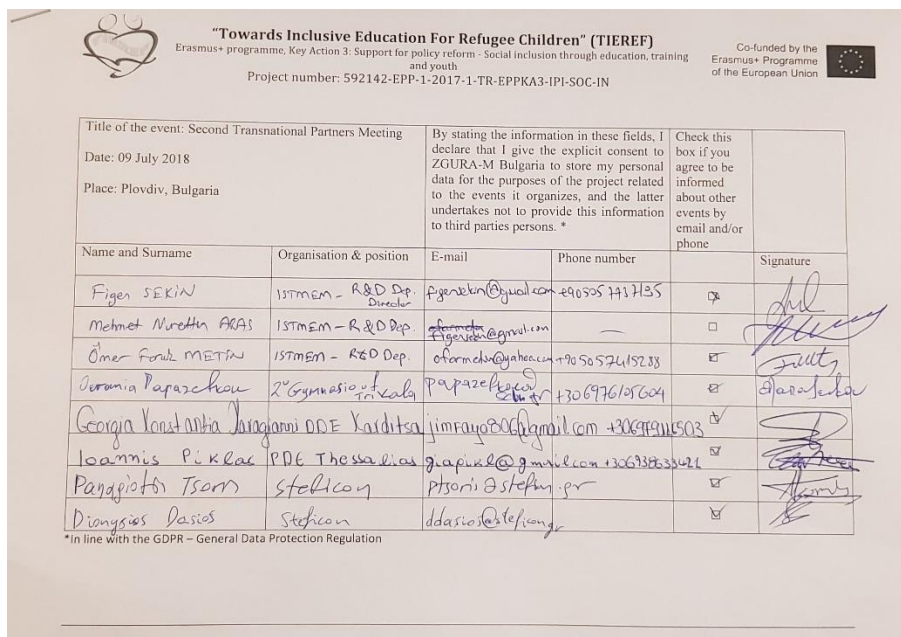 "Towards Inclusive Education For Refugee Children" (TIEREF)
Erasmus+ programme, Key Action 3: Support for policy reform - Social inclusion through education, training
and youth
Project number: 592142-EPP-1-2017-1-TR-EPPKA3-IPI-SOC-IN
Co-funded by the
Erasmus+ Programme
of the European Union
Title of the event: Second Transnational Partners Meeting
Date: 09 July 2018
Place: Plovdiv, Bulgaria
By stating the information in these fields, I
declare that I give the explicit consent to
ZGURA-M Bulgaria to store my personal
data for the purposes of the project related
to the events it organizes, and the latter
undertakes not to provide this information
to third parties persons. *
Check this
box if you
agree to be
informed
about other
events by
email and/or
phone
Name and Surname Organisation & position E-mail Phone number Signature
Figen SEKİN ISTMEM - R&D Dep. Director figensekin@gmail.com
Mehmet Nurettin ARAS ISTMEM - R&D Dep. —
Ömer Faruk METİN ISTMEM - R&D Dep. +905057415288
2º Gymnasio of Trikala +306976105604
Georgia Konstantia DDE Karditsa jimrayo806@gmail.com
Ioannis Piklas PDE Thessalias giapikl@gmail.com +306938633421
Steficon
Dionysios Dasios Steficon ddasios@stefcon.gr
*In line with the GDPR – General Data Protection Regulation